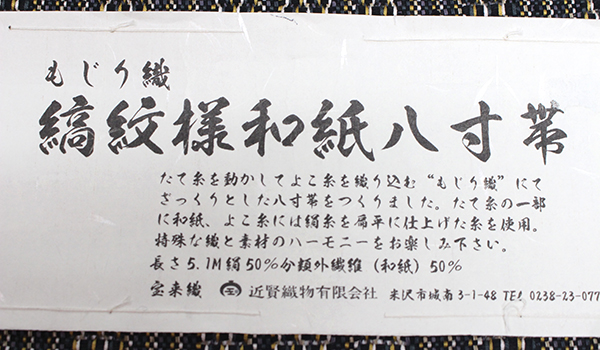 もじり織
縞紋様和紙八寸帯
たて糸を動かしてよこ糸を織り込む“もじり織”にて
ざっくりとした八寸帯をつくりました。たて糸の一部
に和紙、よこ糸には絹糸を扁平に仕上げた糸を使用。
特殊な織と素材のハーモニーをお楽しみ下さい。
長さ5.1M絹50%分類外繊維（和紙）50%
宝来織 宝 近賢織物有限会社 米沢市城南3-1-48 TEL 0238-23-077